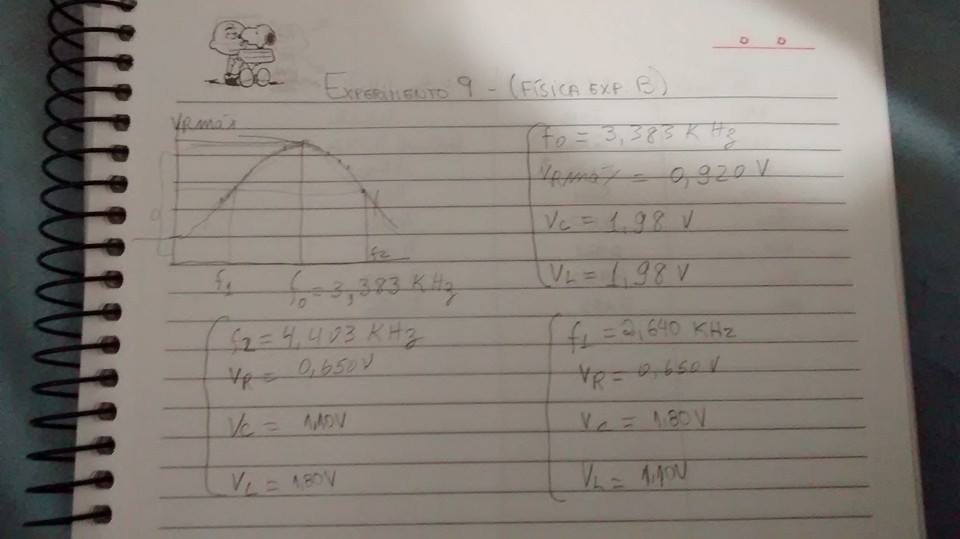 EXPERIMENTO 9 - (FÍSICA EXP B)
VRmáx
f1
f0 = 3,383 KHz
f2
f0 = 3,383 KHz
VRmáx = 0,920 V
Vc = 1,98 V
VL = 1,98 V
f2 = 4,403 KHz
VR = 0,650V
Vc = 1,10V
VL = 1,80V
f1 = 2,640 KHz
VR = 0,650V
Vc = 1,80V
VL = 1,10V